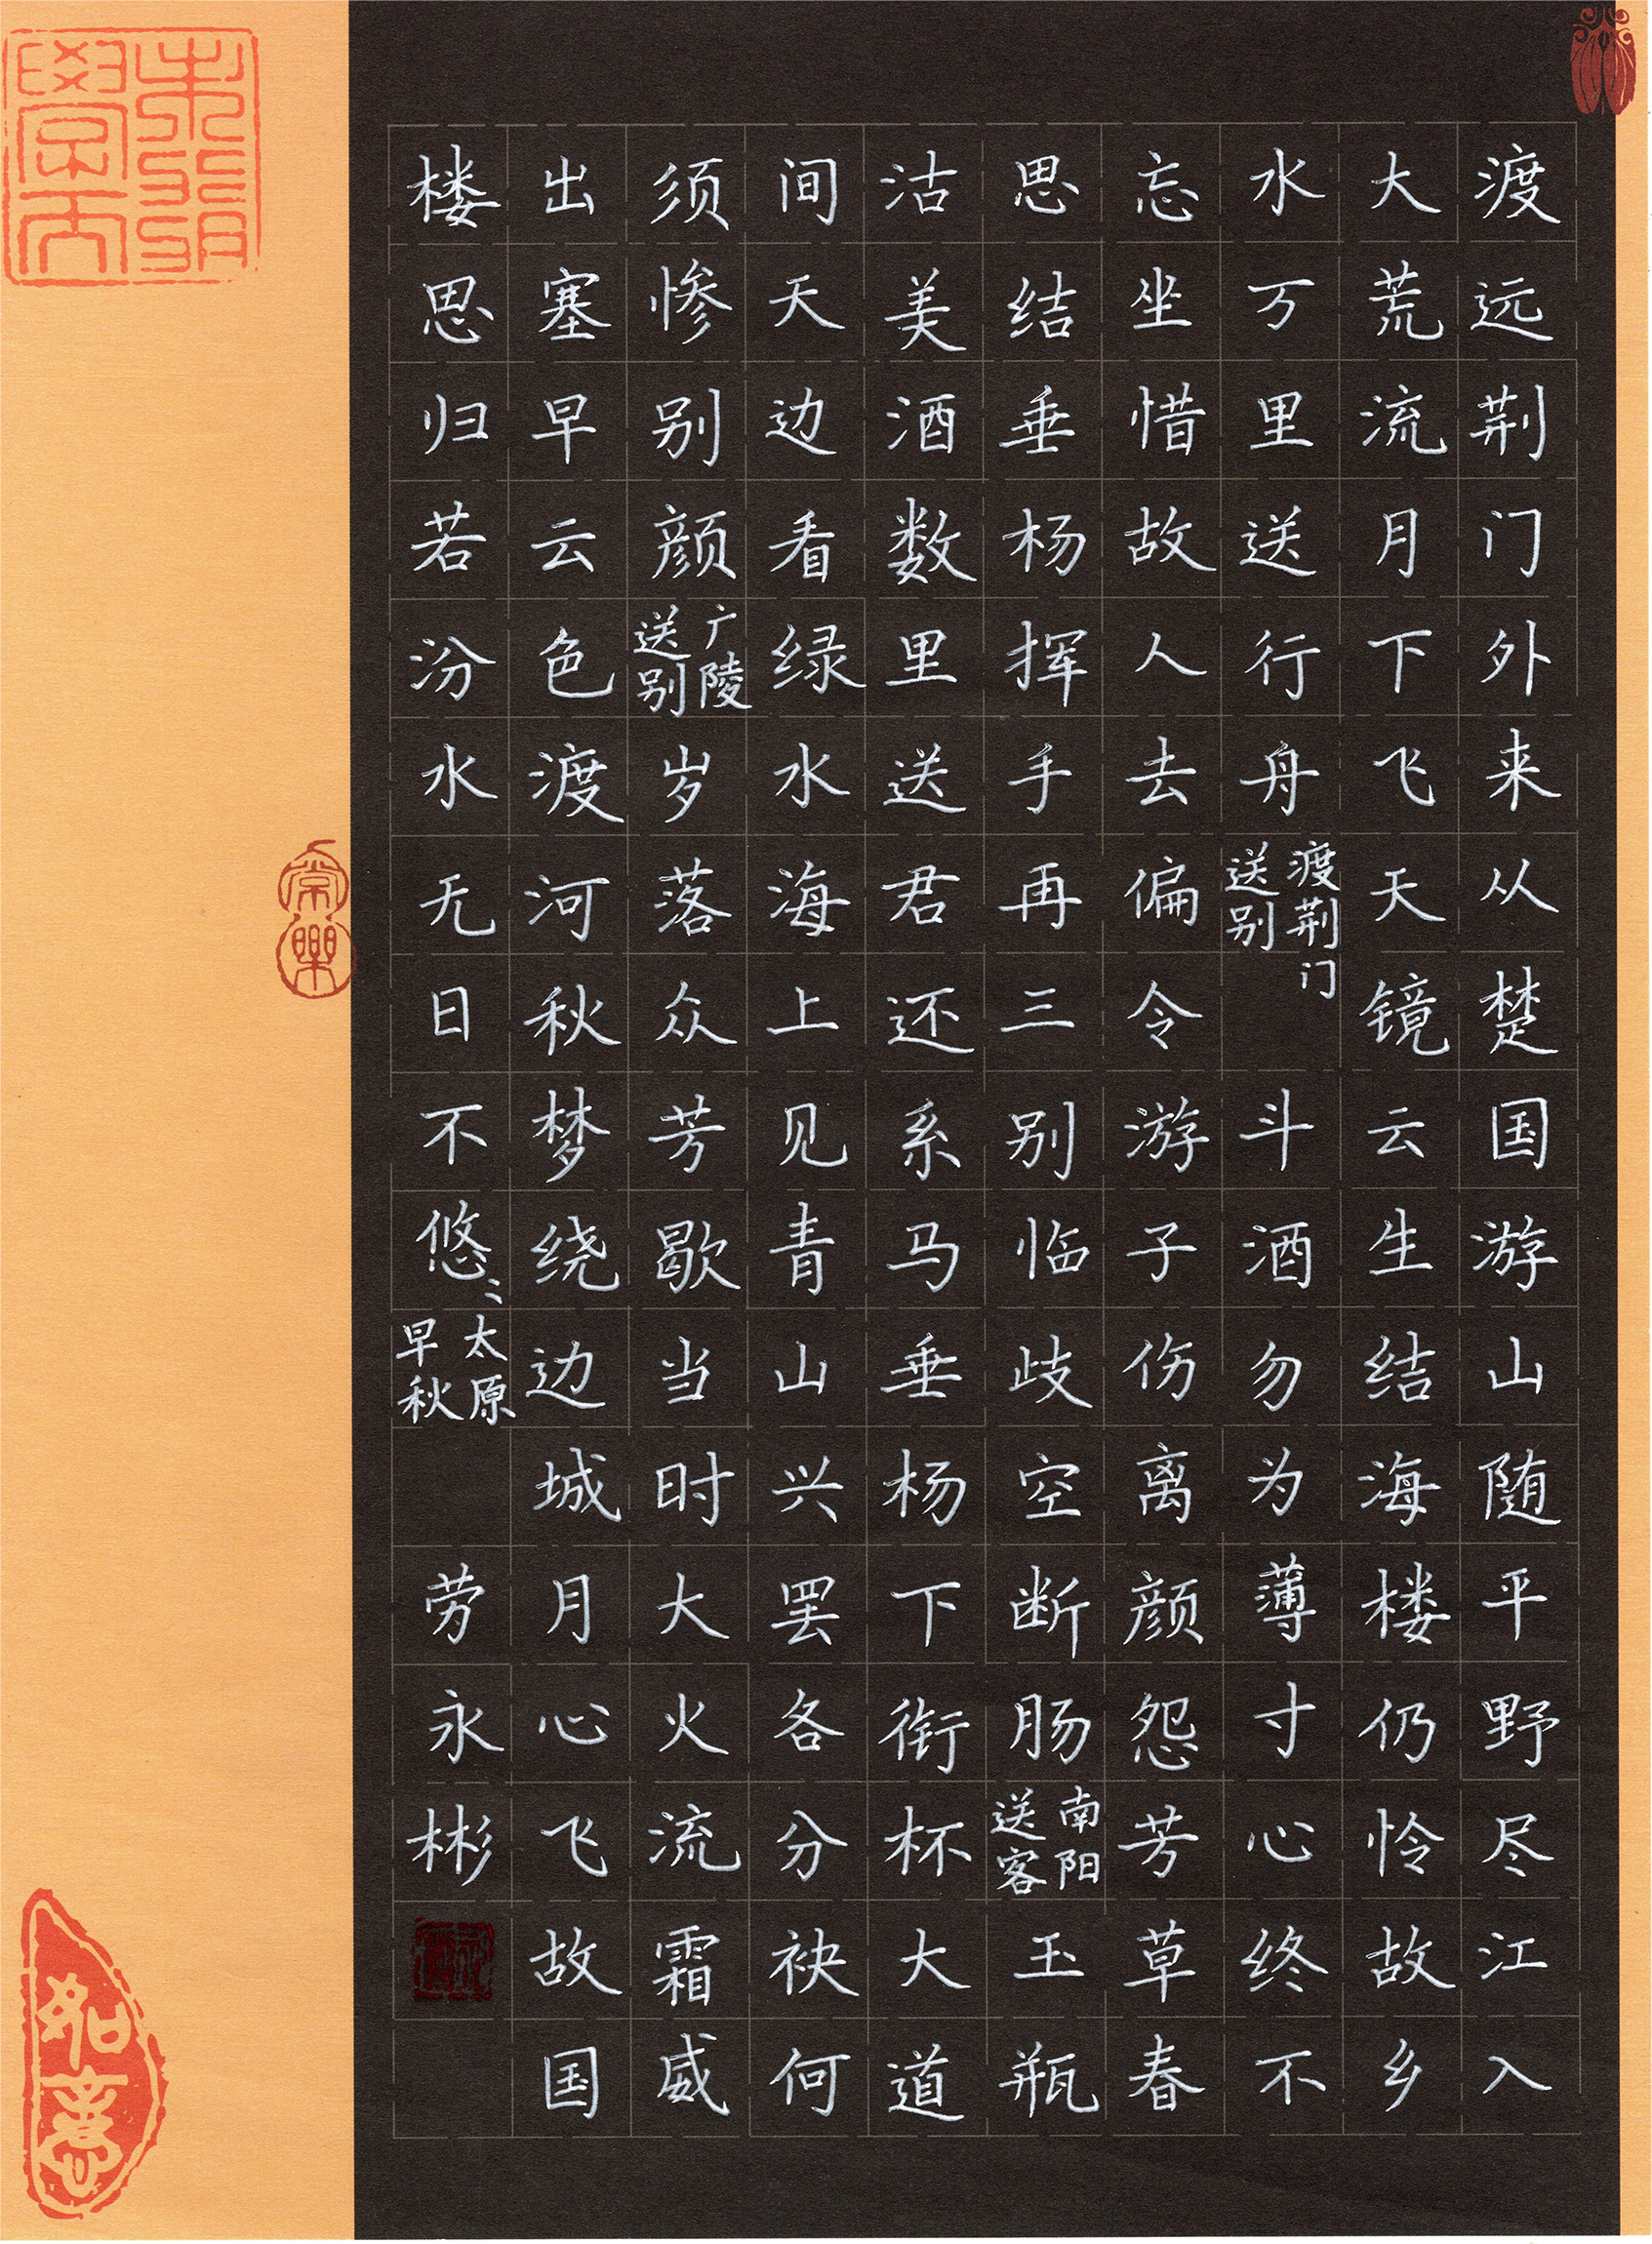 渡远荆门外来从楚国游山随平野尽江入
大荒流月下飞天镜云生结海楼仍怜故乡
水万里送行舟渡荆门送别斗酒勿为薄寸心终不
忘坐惜故人去偏令游子伤离颜怨芳草春
思结垂杨挥手再三别临歧空断肠南阳送客玉瓶
沽美酒数里送君还系马垂杨下衔杯大道
间天边看绿水海上见青山兴罢各分袂何
须惨别颜广陵送别岁落众芳歇当时大火流霜威
出塞早云色渡河秋梦绕边城月心飞故国
楼思归若汾水无日不悠〻太原早秋
劳永彬
常樂
如意